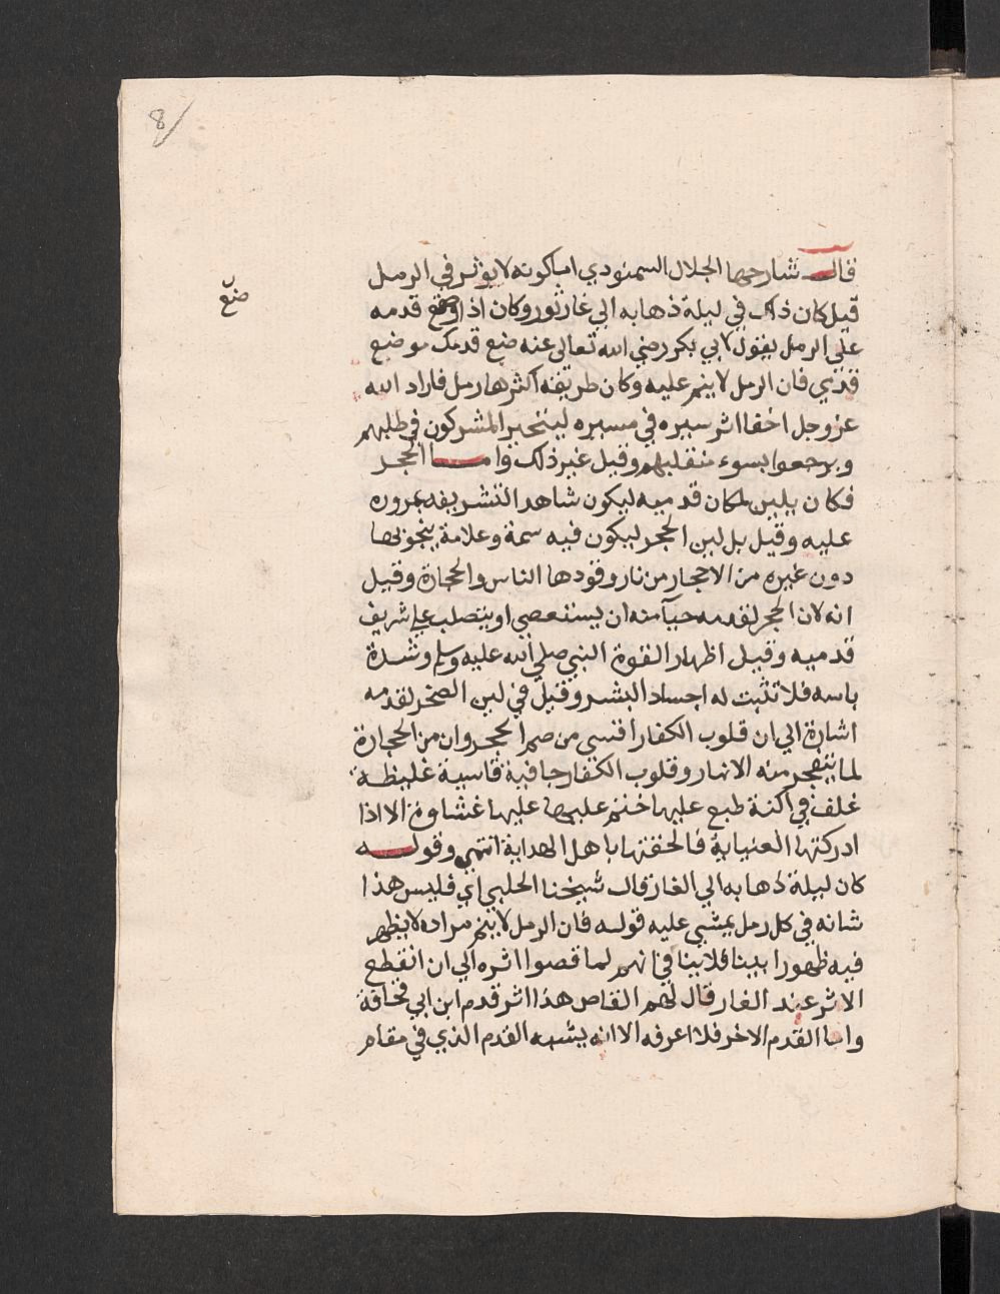 8
قال شارحها الجلال السمنودي اما كونه لا يوثر في الرمل
قيل كان ذلك في ليلة ذهابه الي غار ثور وكان اذا وضع قدمه
ضع
علي الرمل يقول لابي بكر رضي الله تعالي عنه ضع قدمك موضع
قدمي فان الرمل لا ينم عليه وكان طريقه اكثرها رمل فاراد الله
عز وجل اخفا اثر سيره في مسيره ليتحير المشركون في طلبهم
ويرجعوا بسوء منقلبهم وقيل غير ذلك واما الحجر
فكان يلين لمكان قدميه ليكون شاهد التشريفه بمروره
عليه وقيل بل لين الحجر ليكون فيه سمة وعلامة ينجو بها
دون غيره من الاحجار من نار وقودها الناس والحجارة وقيل
انه لان الحجر لقدمه حيآ منه ان يستعصي او يتصلب علي شريف
قدميه وقيل اظهار القوة النبي صلي الله عليه وسلم وشدة
باسه فلا تثبت له اجساد البشر وقيل في لين الصخر لقدمه
اشارة الي ان قلوب الكفار اقسي من صم الحجر وان من الحجارة
لما يتفجر منه الانهار وقلوب الكفار جافية قاسية غليظة
غلف في اكنة طبع عليها ختم عليها عليها غشاوة الا اذا
ادركتها العناية فالحقتها باهل الهداية انتهي وقوله
كان ليلة ذهابه الي الغار قال شيخنا الحلبي اي فليس هذا
شانه في كل رمل يمشي عليه قوله فان الرمل لا ينم مراده لا يظهر
فيه ظهورا بينا فلا ينافي انهم لما قصوا اثره الي ان انقطع
الاثر عند الغار قال لهم القاص هذا اثر قدم ابن ابي قحافة
واما القدم الاخر فلا اعرفه الا انه يشبه القدم الذي في مقام